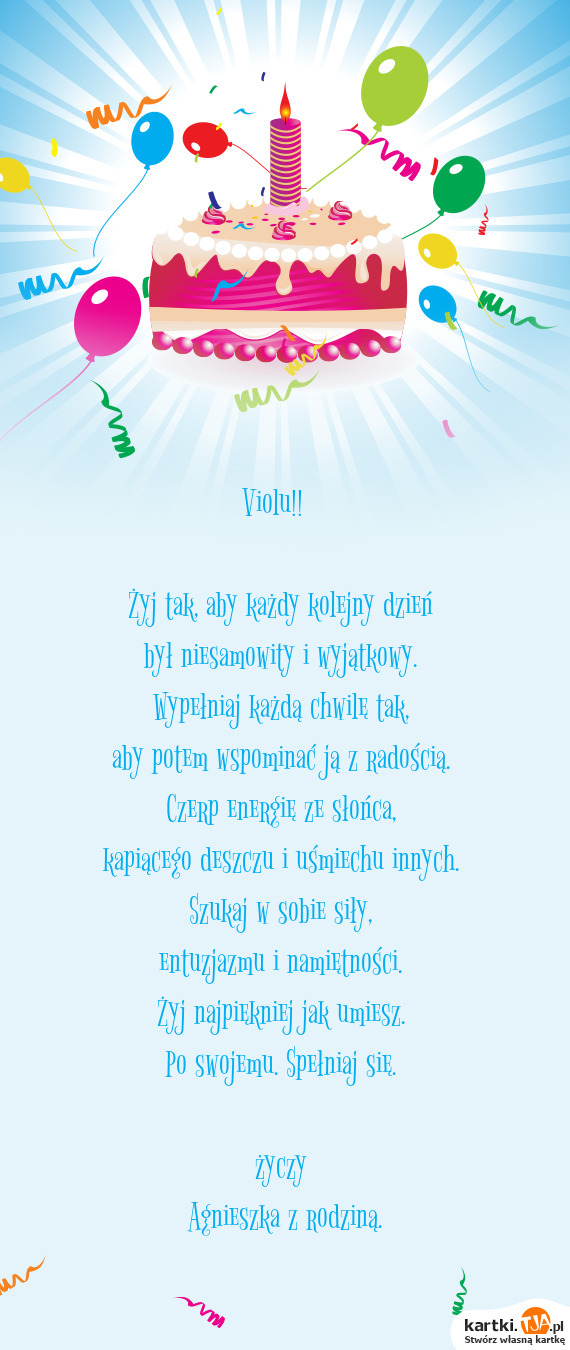 Violu!!
Żyj tak, aby każdy kolejny dzień
był niesamowity i wyjątkowy.
Wypełniaj każdą chwilę tak,
aby potem wspominać ją z radością.
Czerp energię ze słońca,
kapiącego deszczu i uśmiechu innych.
Szukaj w sobie siły,
entuzjazmu i namiętności.
Żyj najpiękniej jak umiesz.
Po swojemu. Spełniaj się.
życzy
Agnieszka z rodziną.
kartki.TJA.pl
Stwórz własną kartkę